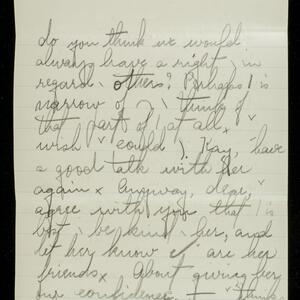 do you think we would
always have a right, in
regard, others? Perhaps I is
narrow of to think of
that part of, at all x
wish I could May, have
a good talk with her
again x Anyway, dear, I
agree with you that I is
best be kind her, and
let her know are her
friends x About giving her
our confidence - I think